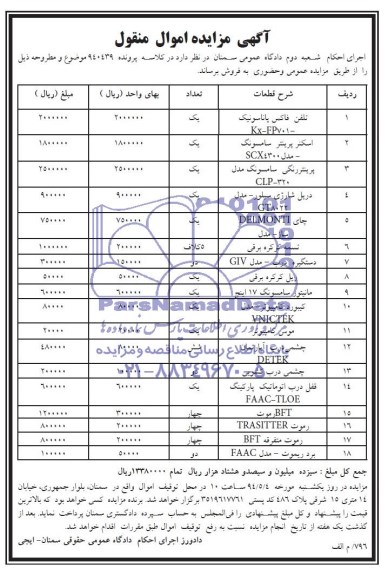 آگهی مزایده اموال منقول
اجرای احکام شعبه دوم دادگاه عمومی سمنان در نظر دارد در کلاسه پرونده ۹۴۰۴۳۹ موضوع و مطروحه ذیل
را از طریق مزایده عمومی وحضوری به فروش برساند.
ردیف شرح قطعات تعداد بهای واحد (ریال) مبلغ (ریال)
۱ تلفن فاکس پاناسونیک Kx-FP۷۰۱- یک ۲۰۰۰۰۰۰ ۲۰۰۰۰۰۰
۲ اسکنر پرینتر سامسونگ - مدل SCX۴۳۰۰ یک ۱۸۰۰۰۰۰ ۱۸۰۰۰۰۰
۳ پرینتررنگی سامسونگ مدل CLP-۳۲۰ یک ۲۵۰۰۰۰۰ ۲۵۰۰۰۰۰
۴ دریل شارژی - مدل یک ۹۰۰۰۰۰ ۹۰۰۰۰۰
۵ چای DELMONTI ساز - مدل یک ۷۵۰۰۰۰ ۷۵۰۰۰۰
۶ تسمه کرکره برقی ۵کلاف ۲۰۰۰۰۰ ۱۰۰۰۰۰۰
۷ دستگیره - مدل GIV دو ۱۵۰۰۰۰ ۳۰۰۰۰۰
۸ ریل کرکره برقی یک ۵۰۰۰۰ ۵۰۰۰۰
۹ مانیتور سامسونگ ۱۷ اینچ یک ۶۰۰۰۰۰ ۶۰۰۰۰۰
۱۰ کیبورد کامپیوتر - مدل VNICTEK یک
۱۱ موس کامپیوتر یک ۲۰۰۰۰
۱۲ چشمی درب DETEK شش ۴۸۰۰۰۰
۱۳ چشمی درب دو ۲۰۰۰۰۰
۱۴ قفل درب اتوماتیک پارکینگ FAAC-TLOE یک ۶۰۰۰۰۰ ۶۰۰۰۰۰
۱۵ BFTرموت چهار ۳۰۰۰۰۰ ۱۲۰۰۰۰۰
۱۶ رموت TRASITTER چهار ۲۰۰۰۰۰ ۸۰۰۰۰۰
۱۷ رموت متفرقه BFT چهار ۲۰۰۰۰۰ ۸۰۰۰۰۰
۱۸ برد ریموت - مدل FAAC دو ۵۰۰۰۰ ۱۰۰۰۰۰
جمع کل مبلغ : سیزده میلیون و سیصدو هشتاد هزار ریال تمام ۱۳۳۸۰۰۰۰ریال
مزایده در روز یکشنبه مورخه ۹۴/۵/۴ ساعت ۱۰ در محل توقیف اموال واقع در سمنان، بلوار جمهوری، خیابان
۱۴ متری ۱۵ شرقی پلاک ۴۸۶ کد پستی ۳۵۱۹۶۱۷۷۶۱ برگزار خواهد شد. برنده مزایده کسی خواهد بود که بالاترین
قیمت را پیشنهاد و کل مبلغ پیشنهادی را فی‌المجلس به حساب سپرده دادگستری سمنان پرداخت نماید. بعد از
گذشت یک هفته از تاریخ انجام مزایده نسبت به رفع توقیف اموال طبق مقررات اقدام خواهد شد.
دادورز اجرای احکام دادگاه عمومی حقوقی سمنان- ایچی
۷۹۶/ م الف
ParsNamadData
پایگاه اطلاع رسانی مناقصه و مزایده
۰۲۱-۸۸۳۴۹۶۷۰-۵